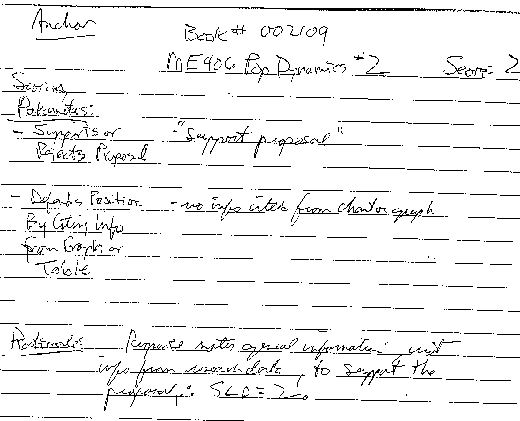 Anchor
Book # 002109
ME406 Pop Dynamics #2 Score= 2
Scoring
Parameters:
- Supports or - "Support proposal"
Rejects Proposal
- Defends Position - no info cited from chart or graph
By Citing Info
from Graph or
Table
Rationale: Response notes general information, not
info from research data, to support the
proposal